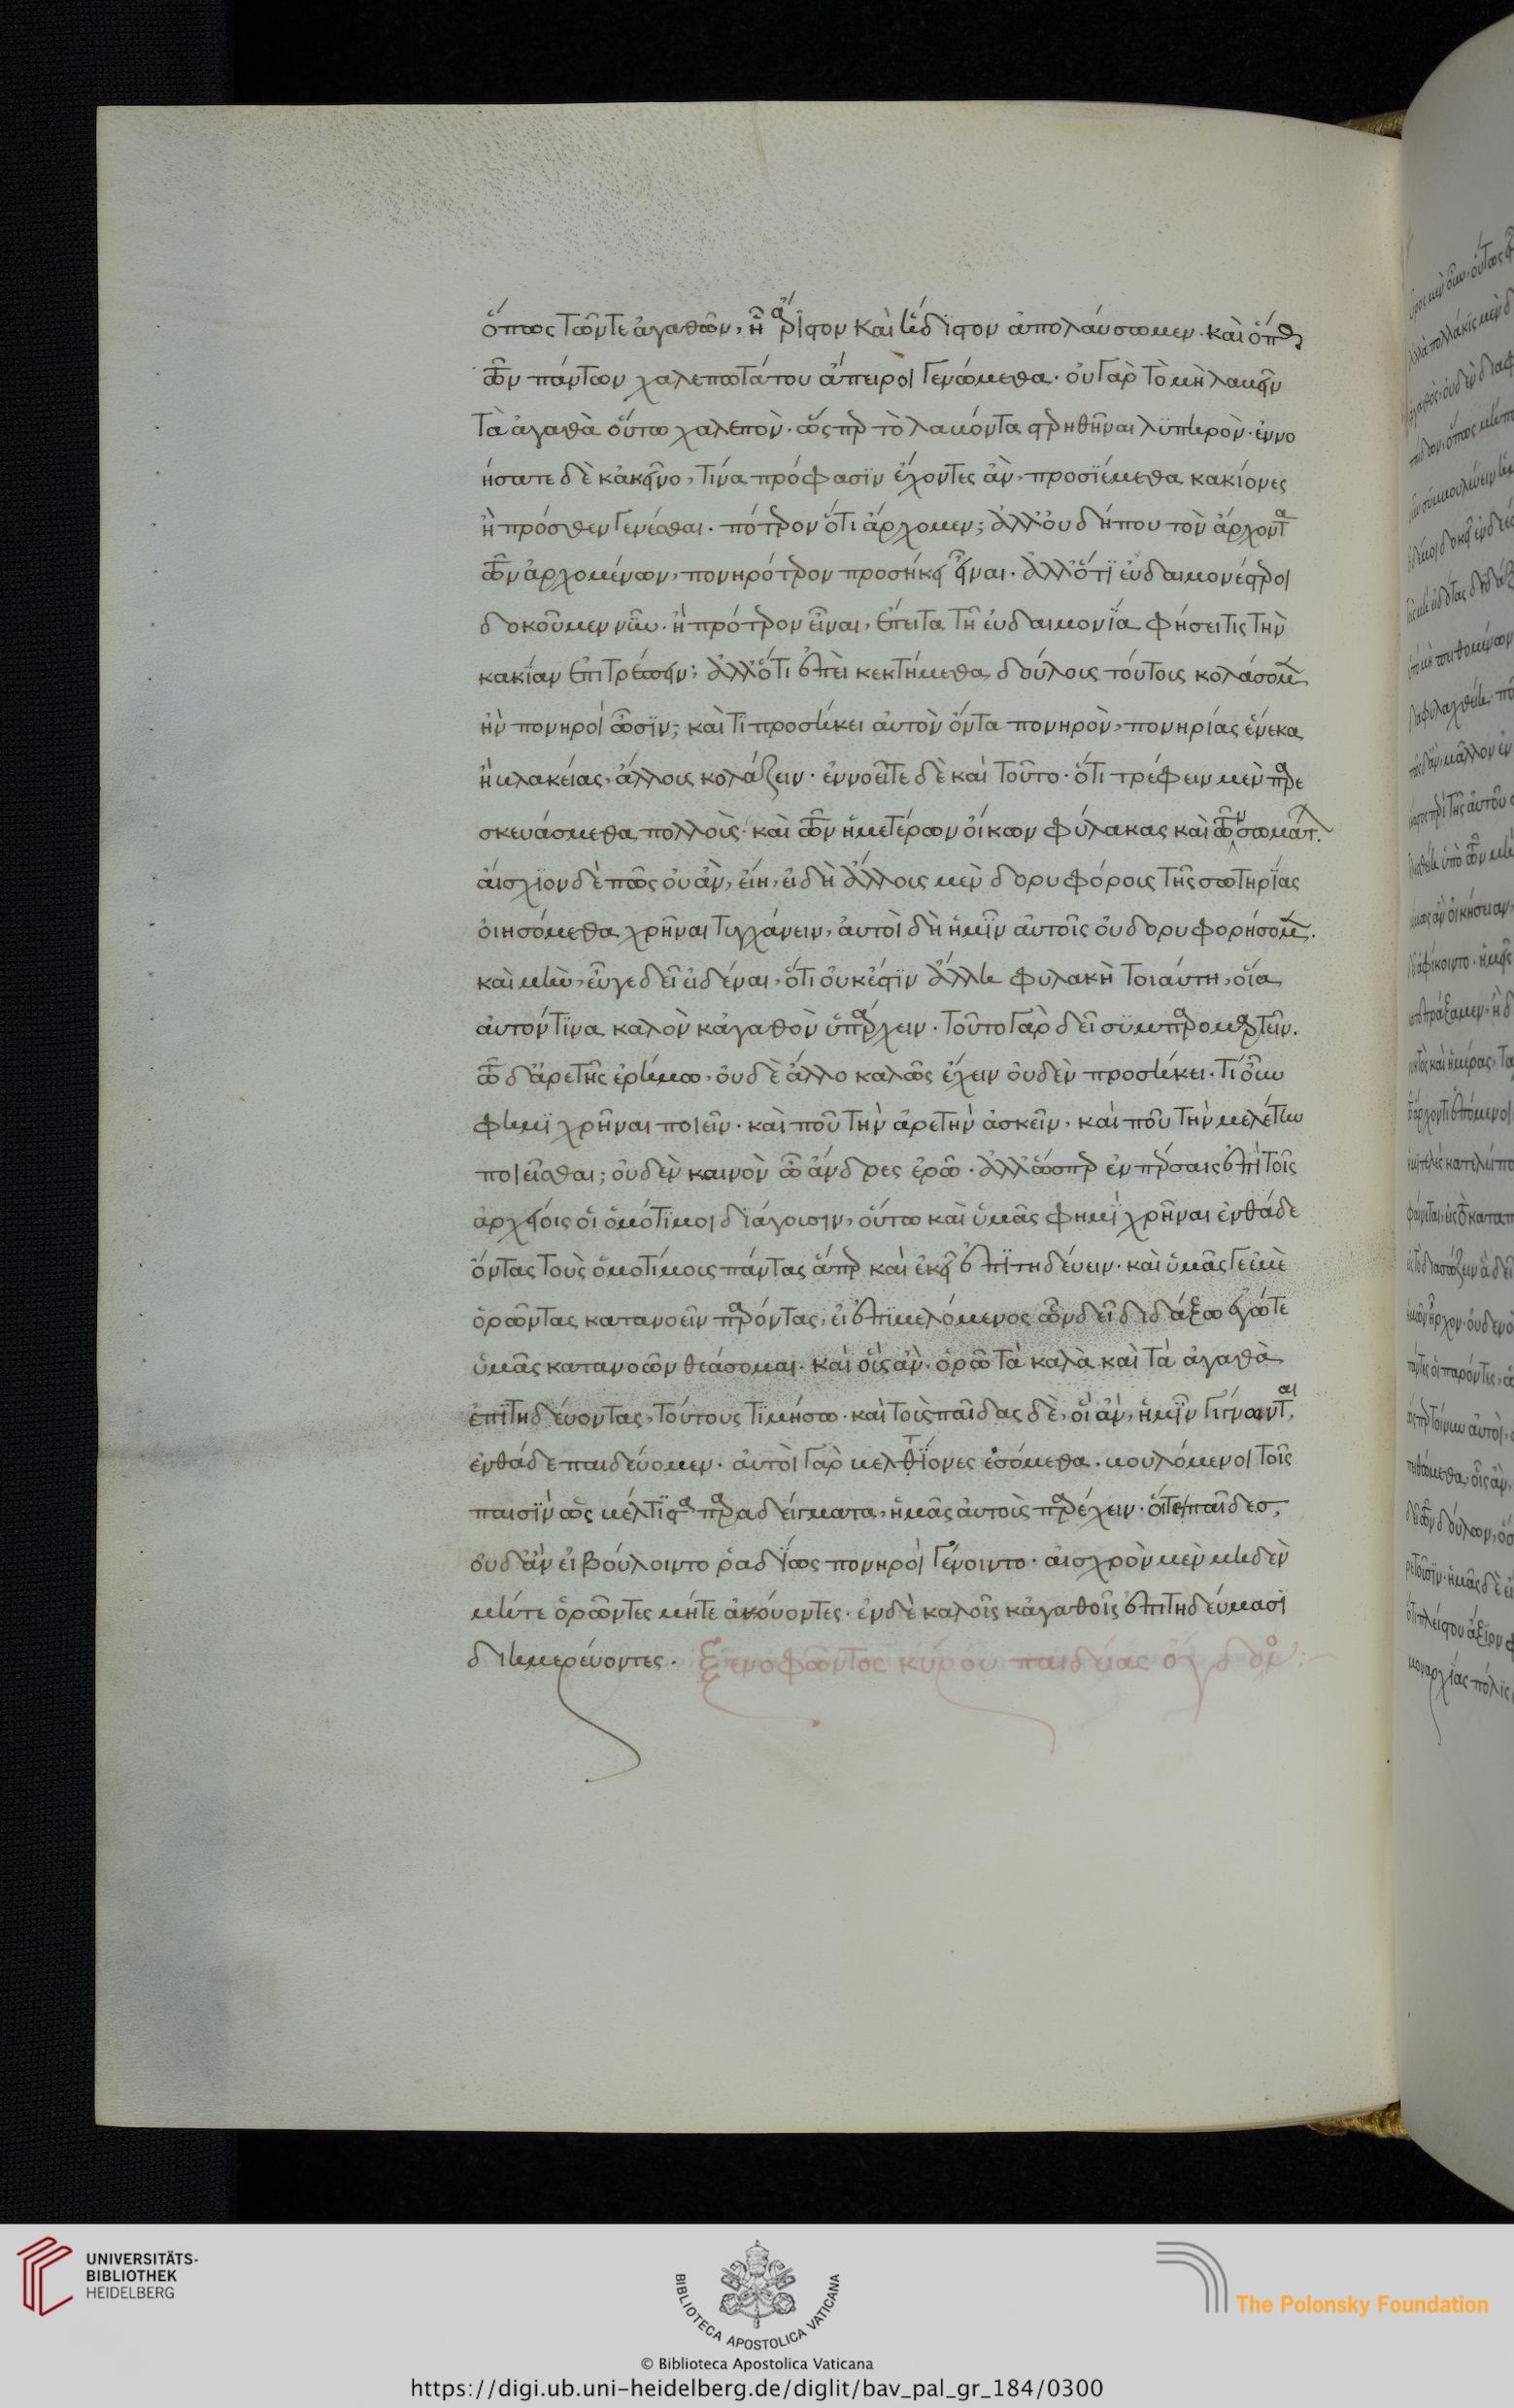 ὅπως τῶν τε ἀγαθῶν, ἧ ἄριστον καὶ ἥδιστον ἀπολαύσωμεν· καὶ ὅπως
τῶν πάντων χαλεπωτάτου ἄπειροι γενώμεθα· οὐ γὰρ τὸ μὴ λαβεῖν
τὰ ἀγαθὰ οὕτω χαλεπὸν· ὥς περ τὸ λαβόντα στερηθῆναι λυπηρὸν· ἐννο
ήσατε δὲ κἀκεῖνο, τίνα πρόφασϊν ἔχοντες ἂν, προσϊέμεθα κακίονες
ἢ πρόσθεν γενέσθαι· πότερον ὅτι ἄρχομεν; ἀλλ' οὐ δήπου τὸν ἄρχοντα
τῶν ἀρχομένων, πονηρότερον προσήκει εἶναι· ἀλλ' ὅτϊ εὐδαιμονέστεροι
δοκοῦμεν νῦν· ἢ πρότερον εἶναι, ἔπειτα τῆ εὐδαιμονΐα φήσει τις τὴν
κακΐαν ἐπιτρέπειν; ἀλλ' ὅτι ἐπεὶ κεκτήμεθα δούλοις τούτοις κολάσομεν
ἢν πονηροὶ ὦσϊν; καὶ τΐ προσήκει αὐτὸν ὄντα πονηρὸν, πονηρίας ἕνεκα
ἢ βλακείας, ἄλλοις κολάζειν· ἐννοεῖτε δὲ καὶ τοῦτο· ὅτι τρέφειν μὲν παρε
σκευάσμεθα πολλοὶς· καὶ τῶν ἡμετέρων οἴκων φύλακας καὶ τῶν σωμάτων.
αἴσχϊον δὲ πῶς οὐ ἂν, εἴη, εἰ δὴ ἄλλοις μὲν δορυφόροις τῆς σωτηρΐας
οἰησόμεθα χρῆναι τυγχάνειν, αὐτοὶ δὴ ἡμῖν αὐτοῖς οὐ δορυφορήσομεν.
καὶ μὴν, εὖ γε δεῖ εἰδέναι, ὅτι οὐκ ἔστϊν ἄλλη φυλακὴ τοιαύτη, οἵα
αὐτόν τϊνα καλὸν κἀγαθὸν ὑπάρχειν· τοῦτο γὰρ δεῖ συμπαρομαρτεῖν.
τῶ δ' ἀρετῆς ἐρήμω, οὐδὲ ἄλλο καλῶς ἔχειν οὐδὲν προσήκει· τί οὖν
φημϊ χρῆναι ποιεῖν· καὶ ποῦ τὴν ἀρετὴν ἀσκεῖν, καὶ ποῦ τὴν μελέτην
ποιεῖσθαι; οὐδὲν καινὸν ὦ ἄνδρες ἐρῶ· ἀλλ' ὥσπερ ἐν πέρσαις ἐπὶ τοῖς
ἀρχείοις οἱ ὁμότιμοι διάγοισιν, οὕτω καὶ ὑμᾶς φημϊ χρῆναι ἐνθάδε
ὄντας τοὺς ὁμοτίμοις πάντας ἅπερ καὶ ἐκεῖ ἐπϊτηδεύειν· καὶ ὑμᾶς γε ἐμὲ
ὁρῶντας κατανοεῖν παρόντας, εἰ ἐπϊμελόμενος ὧν δεῖ διδάξω ἐγώ τε
ὑμᾶς κατανοῶν θεάσομαι· καὶ οἷς ἂν· ὁρῶ τὰ καλὰ καὶ τὰ ἀγαθὰ
ἐπϊτηδεύοντας, τούτους τϊμήσω· καὶ τοὶς παῖδας δὲ, οἳ ἂν, ἡμῖν γίγνωνται,
ἐνθάδε παιδεύομεν· αὐτοὶ γὰρ βελτΐονες ἐσόμεθα· βουλόμενοι τοῖς
παισϊν ὡς βέλτϊστα παραδείγματα, ἡμᾶς αὐτοὶς παρέχειν· οἵ τε παῖδες,
οὐδ' ἂν εἰ βούλοιντο ῥαδΐως πονηροὶ γένοιντο· αἰσχρὸν μὲν μηδὲν
μήτε ὁρῶντες μήτε ἀκούοντες· ἐν δὲ καλοῖς κἀγαθοῖς ἐπιτηδεύμασι
διημερεύοντες· ξενοφῶντος κύρου παιδείας ὄγδοον:
UNIVERSITÄTS-
BIBLIOTHEK
HEIDELBERG
BIBLIOTECA APOSTOLICA VATICANA
The Polonsky Foundation
© Biblioteca Apostolica Vaticana
https://digi.ub.uni-heidelberg.de/diglit/bav_pal_gr_184/0300